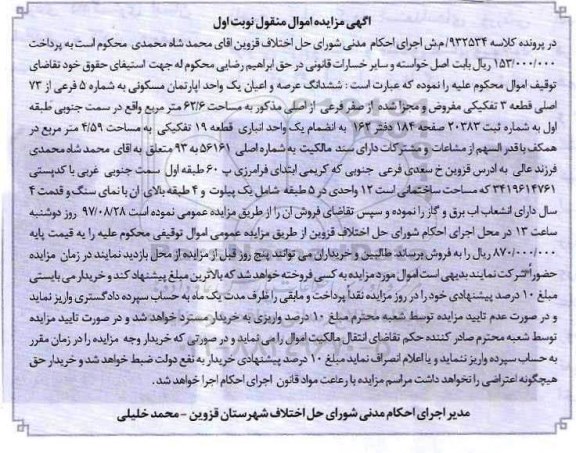 آگهی مزایده اموال منقول نوبت اول
در پرونده کلاسه ۹۳۲۵۳۴/م.ش اجرای احکام مدنی شورای حل اختلاف قزوین آقای محمد شاه محمدی محکوم است به پرداخت
۱۵۳/۰۰۰/۰۰۰ ریال بابت اصل خواسته و سایر خسارات قانونی در حق ابراهیم رضایی محکوم له جهت استیفای حقوق خود تقاضای
توقیف اموال محکوم علیه را نموده که عبارت است : ششدانگ عرصه و اعیان یک واحد آپارتمان مسکونی به شماره ۵ فرعی از ۷۳
اصلی قطعه ۳ تفکیکی مفروض و مجزا شده از صفر فرعی از اصلی مذکور به مساحت ۶۲/۶ متر مربع واقع در سمت جنوبی طبقه
اول به شماره ثبت ۲۰۳۸۳ صفحه ۱۸۴ دفتر ۱۶۲ به انضمام یک واحد انباری قطعه ۱۹ تفکیکی به مساحت ۴/۵۹ متر مربع در
همکف با قدر السهم از مشاعات و مشترکات دارای سند مالکیت به شماره اصلی ۵۶۱۶۱ به ۹۳ متعلق به آقای محمد شاه محمدی
فرزند عالی به آدرس قزوین خ سعدی فرعی جنوبی که کریمی ابتدای فرامرزی پ ۶۰ طبقه اول سمت جنوبی غربی با کدپستی
۳۴۱۹۶۱۴۷۶۱ که مساحت ساختمانی است ۱۲ واحدی در ۵ طبقه شامل یک پیلوت و ۴ طبقه بالای آن با نمای سنگ و قدمت ۴
سال دارای انشعاب آب برق و گاز را نموده و سپس تقاضای فروش آن را از طریق مزایده عمومی نموده است ۹۷/۰۸/۲۸ روز دوشنبه
ساعت ۱۳ در محل اجرای احکام شورای حل اختلاف قزوین از طریق مزایده عمومی اموال توقیفی محکوم علیه را به قیمت پایه
۸۷۰/۰۰۰/۰۰۰ ریال را به فروش برساند طالبین و خریداران می توانند پنج روز قبل از مزایده از محل بازدید نمایند در زمان مزایده
حضورا شرکت نمایند بدیهی است اموال مورد مزایده به کسی فروخته خواهد شد که بالاترین مبلغ پیشنهاد کند و خریدار می بایستی
مبلغ ۱۰ درصد پیشنهادی خود را در روز مزایده نقدا پرداخت و مابقی را ظرف مدت یک ماه به حساب سپرده دادگستری واریز نماید
و در صورت عدم تایید مزایده توسط شعبه محترم مبلغ ۱۰ درصد واریزی به خریدار مسترد خواهد شد و در صورت تایید مزایده
توسط شعبه محترم صادر کننده حکم تقاضای انتقال مالکیت اموال را می نماید و در صورتی که خریدار وجه مزایده را در زمان مقرر
به حساب سپرده واریز ننماید و یا اعلام انصراف نماید مبلغ ۱۰ درصد پیشنهادی خریدار به نفع دولت ضبط خواهد شد و خریدار حق
هیچگونه اعتراضی را نخواهد داشت مراسم مزایده با رعاعت مواد قانون اجرای احکام اجرا خواهد شد.
مدیر اجرای احکام مدنی شورای حل اختلاف شهرستان قزوین - محمد خلیلی